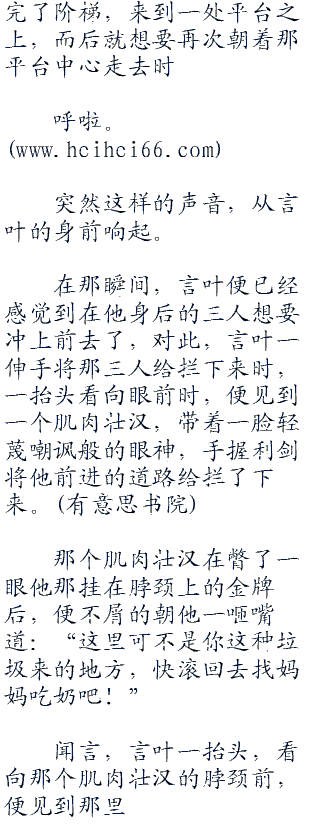 完了阶梯，来到一处平台之
上，而后就想要再次朝着那
平台中心走去时
呼啦。
(www.hcihci66.com)
突然这样的声音，从言
叶的身前响起。
在那瞬间，言叶便已经
感觉到在他身后的三人想要
冲上前去了，对此，言叶一
伸手将那三人给拦下来时，
一抬头看向眼前时，便见到
一个肌肉壮汉，带着一脸轻
蔑嘲讽般的眼神，手握利剑
将他前进的道路给拦了下
来。(有意思书院)
那个肌肉壮汉在瞥了一
眼他那挂在脖颈上的金牌
后，便不屑的朝他一咂嘴
道：“这里可不是你这种垃
圾来的地方，快滚回去找妈
妈吃奶吧！”
闻言，言叶一抬头，看
向那个肌肉壮汉的脖颈前，
便见到那里